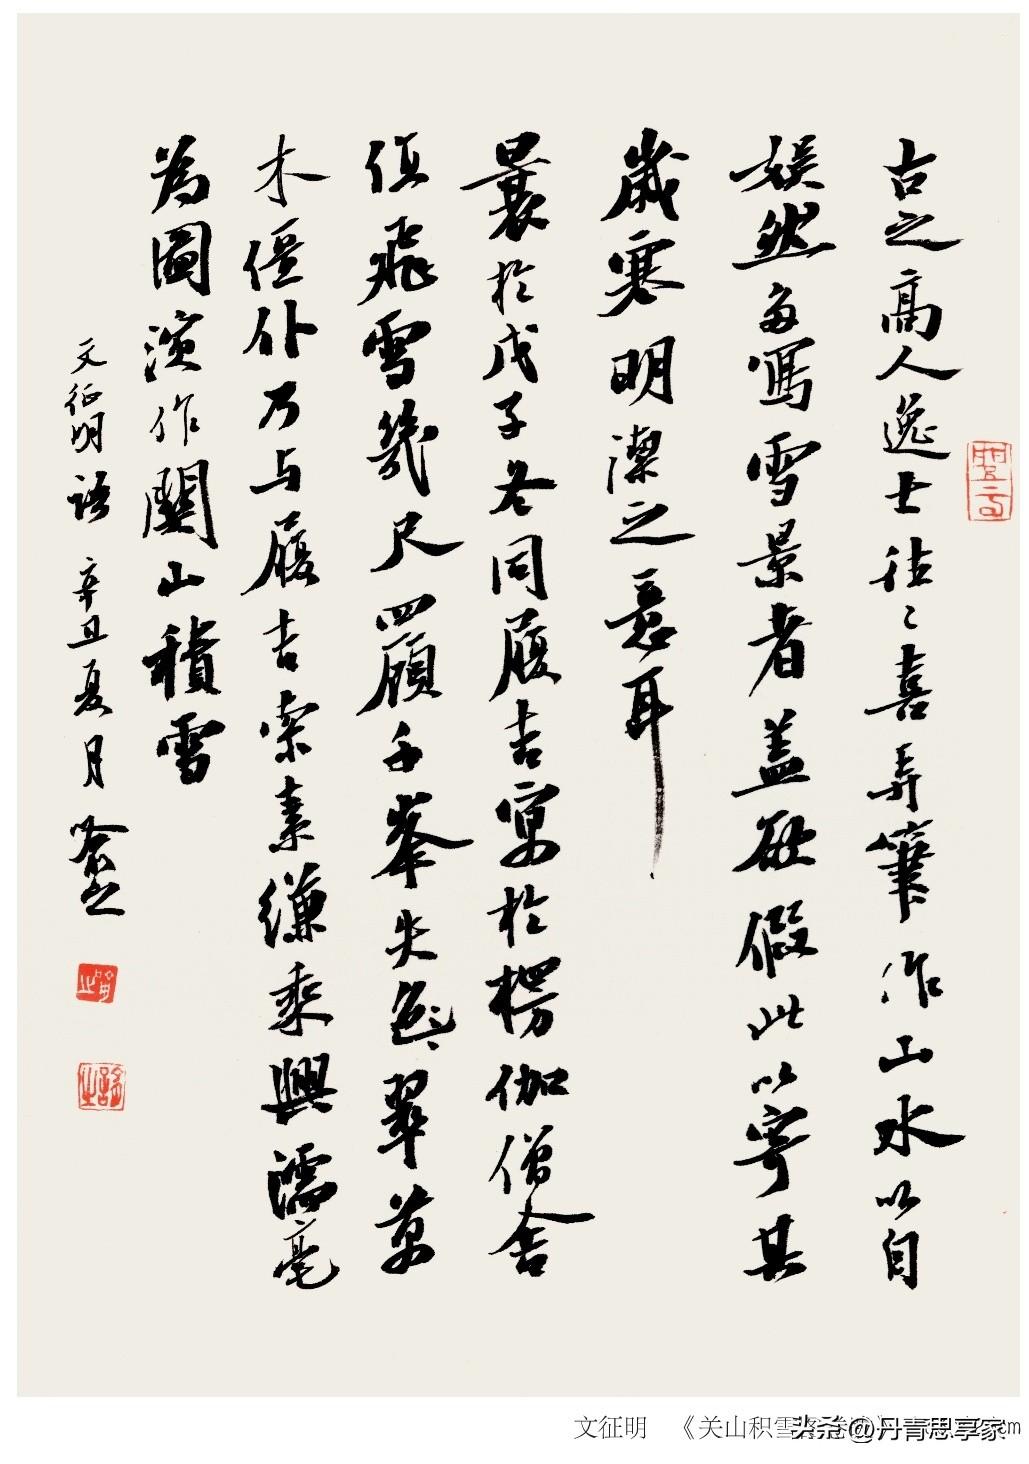 古之高人逸士往々喜弄筆作山水以自
娱然多寫雪景者盖欲假此以寄其
歲寒明潔之意耳
曩於戊子冬同履吉寓於楞伽僧舍
值飛雪幾尺四顧千峯失色々翠萬
木僵仆乃与履吉索素縑乘興濡毫
為圖演作關山積雪
文征明语 辛丑夏月
文征明 《关山积雪
头条@丹青思享家
cm